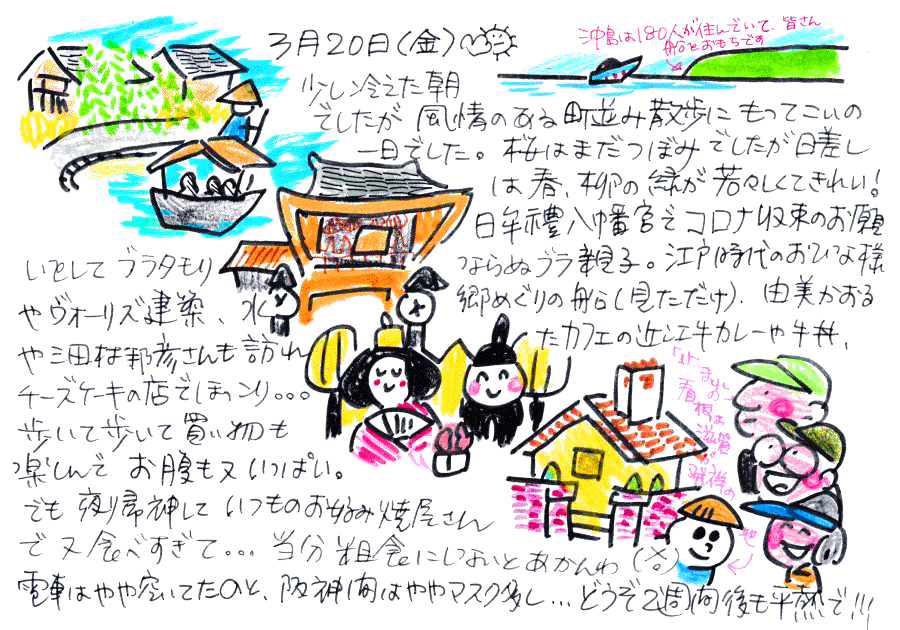 3月20日(金)
沖島は180人が住んでいて、皆さん
船をおもちです
少し冷えた朝
でしたが 風情のある町並み散歩にもってこいの
一日でした。桜はまだつぼみでしたが日差し
は春、柳の緑が若々しくてきれい!
日牟禮八幡宮でコロナ収束のお願
いをして ブラタモリ ならぬブラ親子。江戸時代のおひな様
やヴォーリズ建築、水 郷めぐりの船(見ただけ)、由美かおる
や三田村邦彦さんも訪れ たカフェの近江牛カレーや牛丼、
チーズケーキの店でほっこり...
歩いて歩いて買い物も
楽しんで お腹も又いっぱい。
でも 夜帰神して いつものお好み焼屋さん
で又食べすぎて... 当分粗食にしないとあかんわ(笑)
電車はやや空いてたのと、阪神間はややマスク多し...どうぞ2週間後も平熱で!!!
「止まれ」の
看板は
滋賀が
発祥の
地